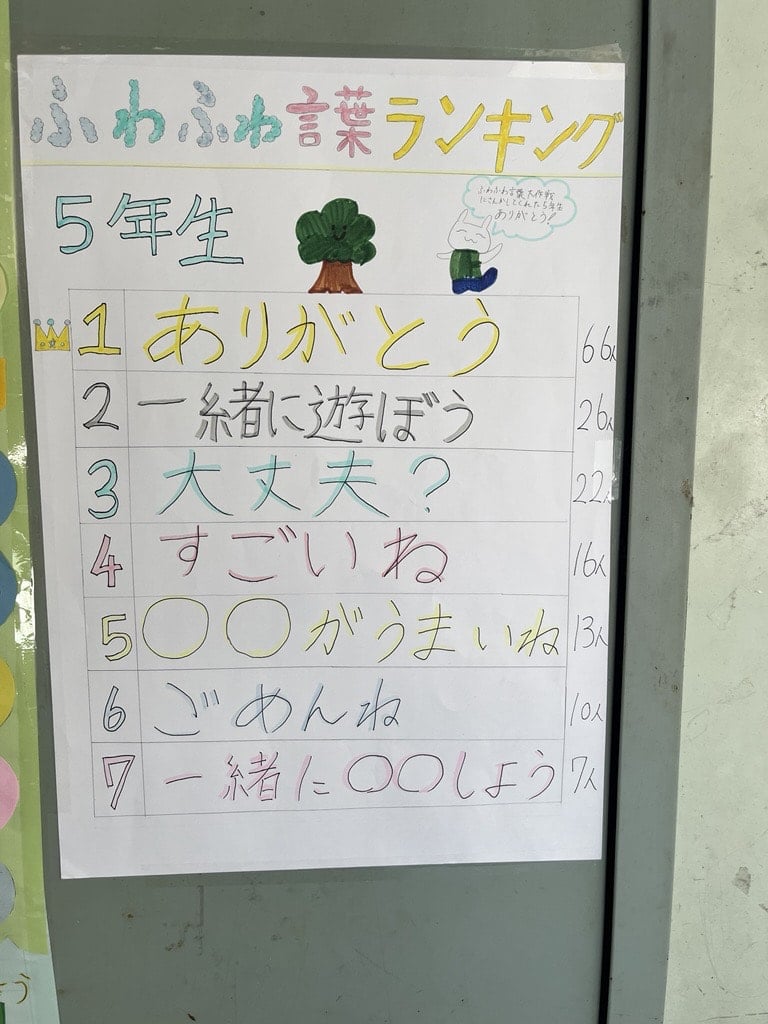 ふわふわ言葉ランキング
5年生
ふわふわ言葉大作戦
にさんかしてくれた5年生
ありがとう!
1 ありがとう 66人
2 一緒に遊ぼう 26人
3 大丈夫? 22人
4 すごいね 16人
5 〇〇がうまいね 13人
6 ごめんね 10人
7 一緒に〇〇しよう 7人
う